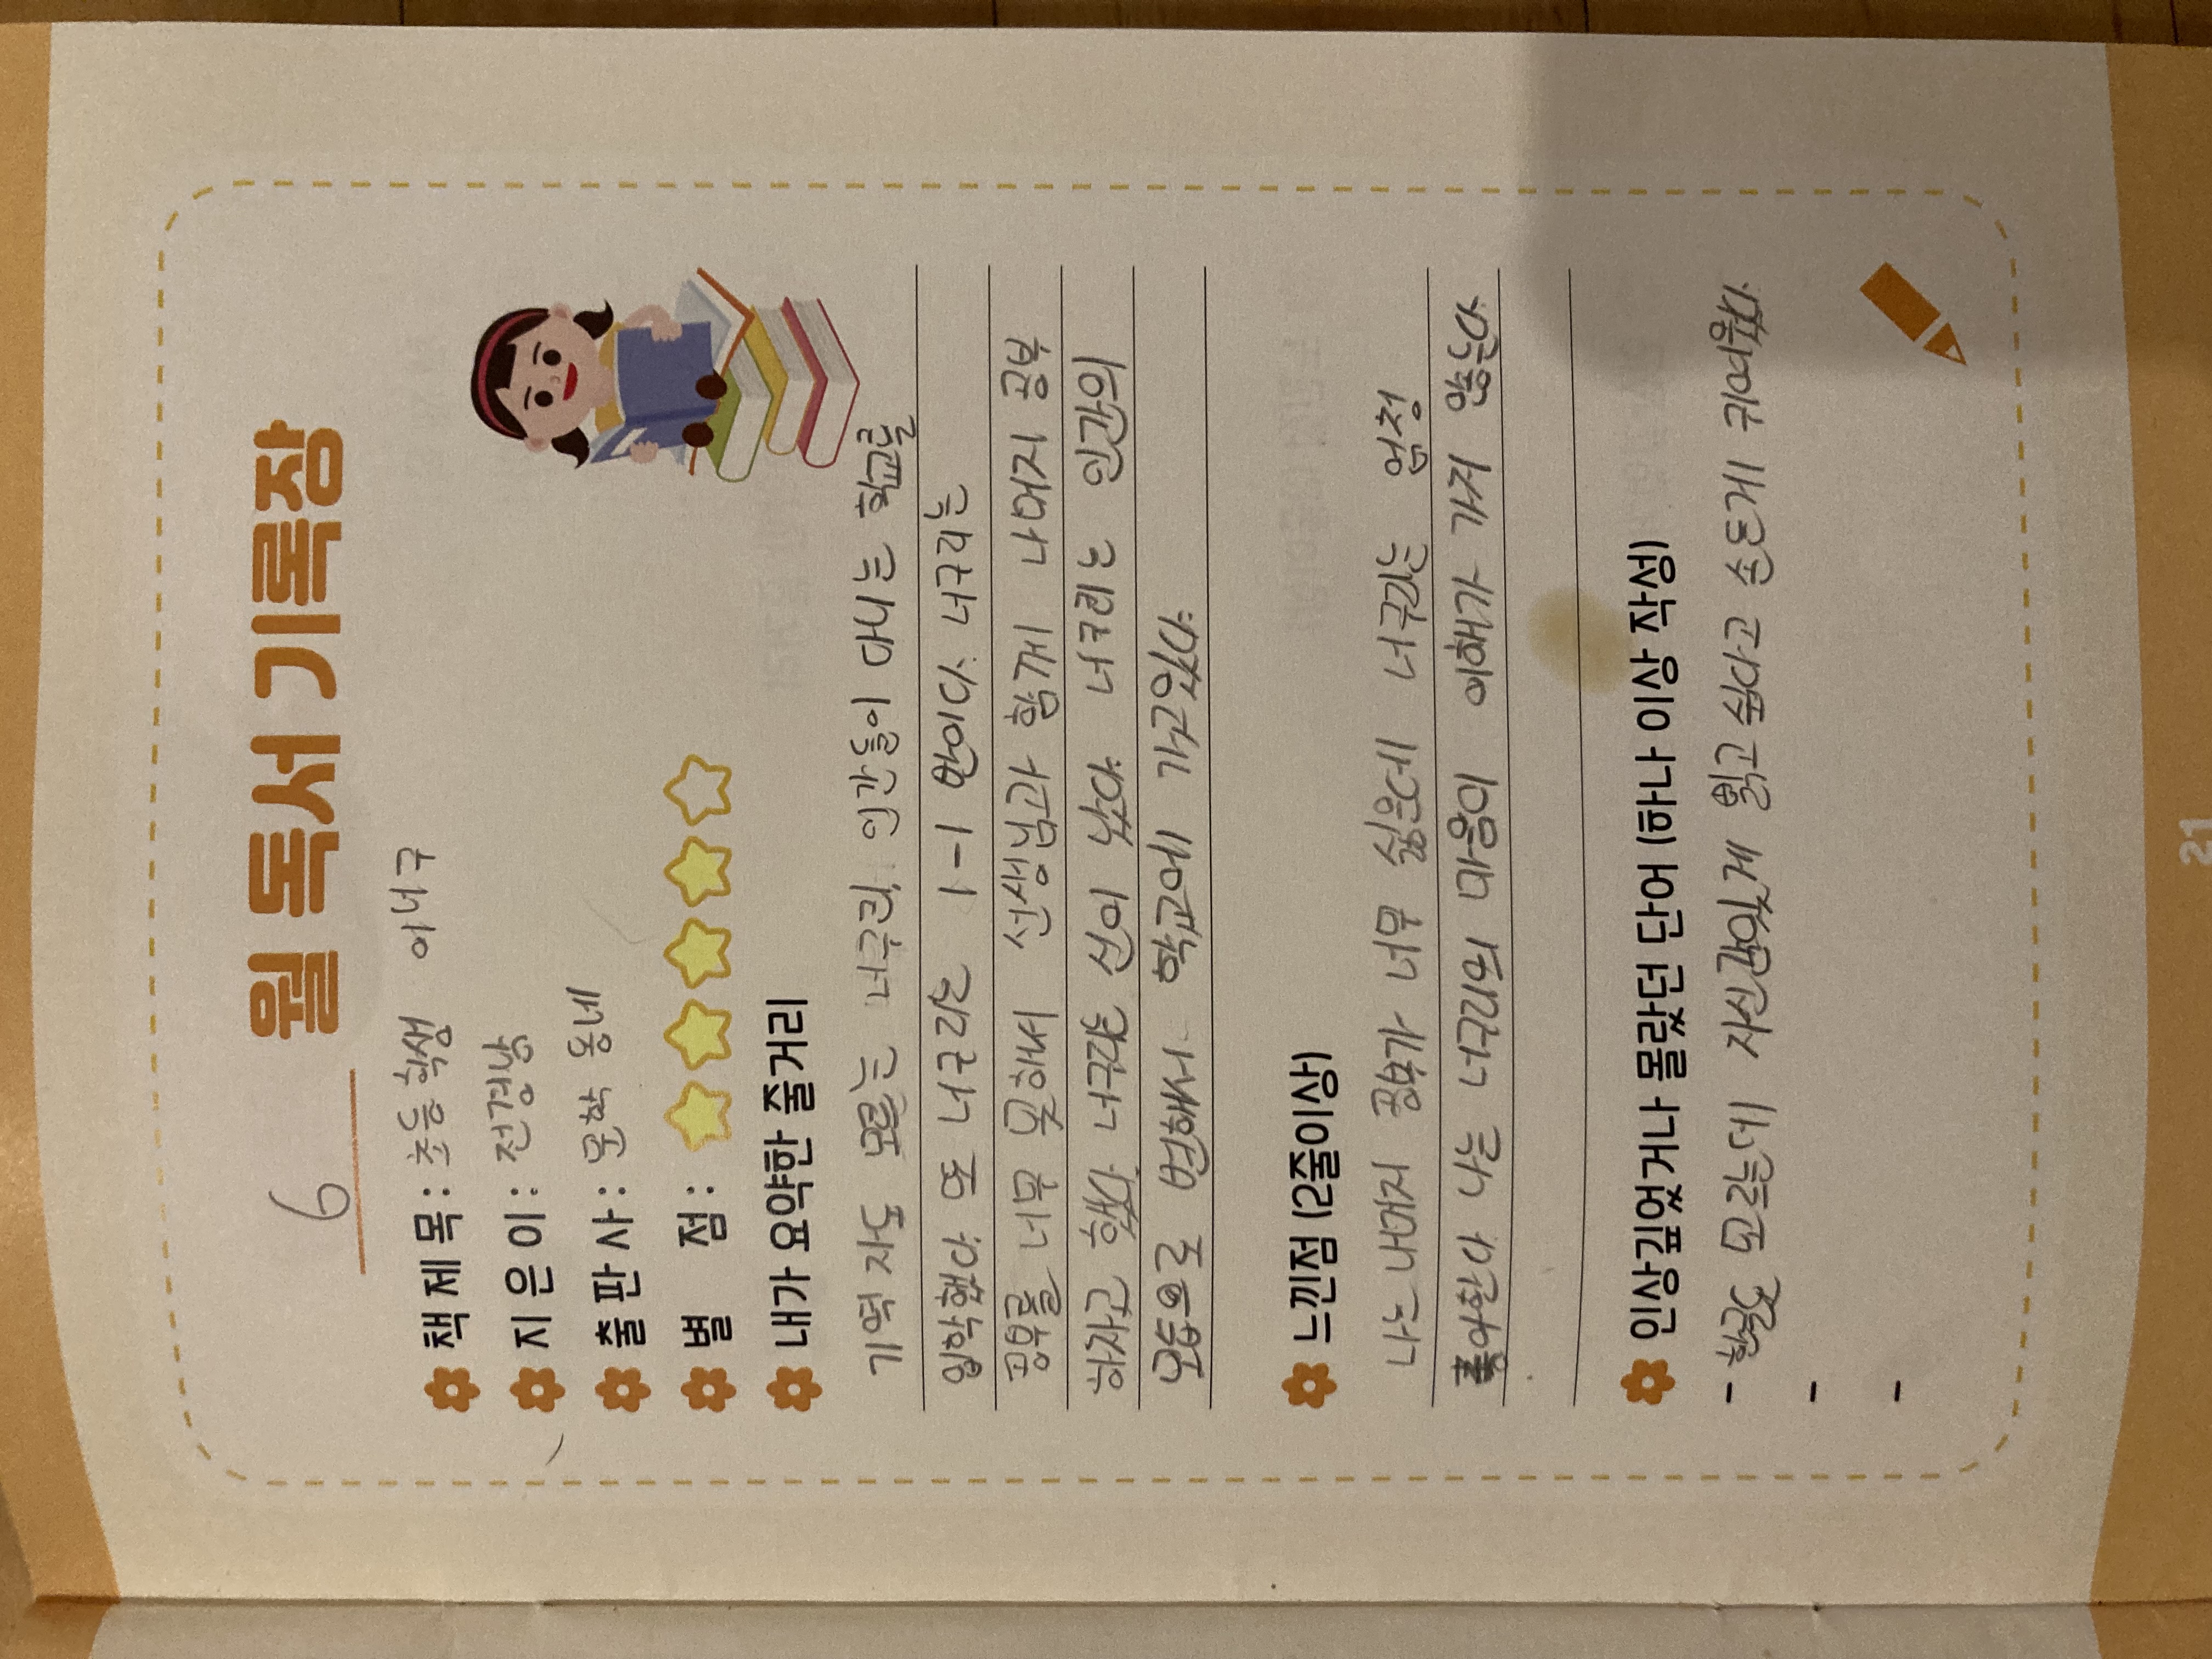 6 월 독서 기록장
책 제 목 : 초등학생 이너구
지 은 이 : 전경남
출 판 사 : 문학 동네
별 점 :
내가 요약한 줄거리
기역 자도 모르는 너구리, 인간들이 다니는 학교를
입학했다. 또 너구리는 1-1 반이다. 너구리는
공부를 너무 못해서 선생님과 함께 나머지 공부
하자고 했다. 너구리는 신이 났다. 너구리는 인간의
모습으로 변해서 학교에 가고있다.
느낀점 (2줄이상)
나는 나머지 공부가 너무 싫은데 너구리는 엄청
좋아한다 나는 너구리의 마음이 이해가 가지 않는다.
인상깊었거나 몰랐던 단어 (하나 이상 작성)
- 한글도 모르는데 자신감있게 읽고 싶다고 손든게 귀여웠다.
-
-
21